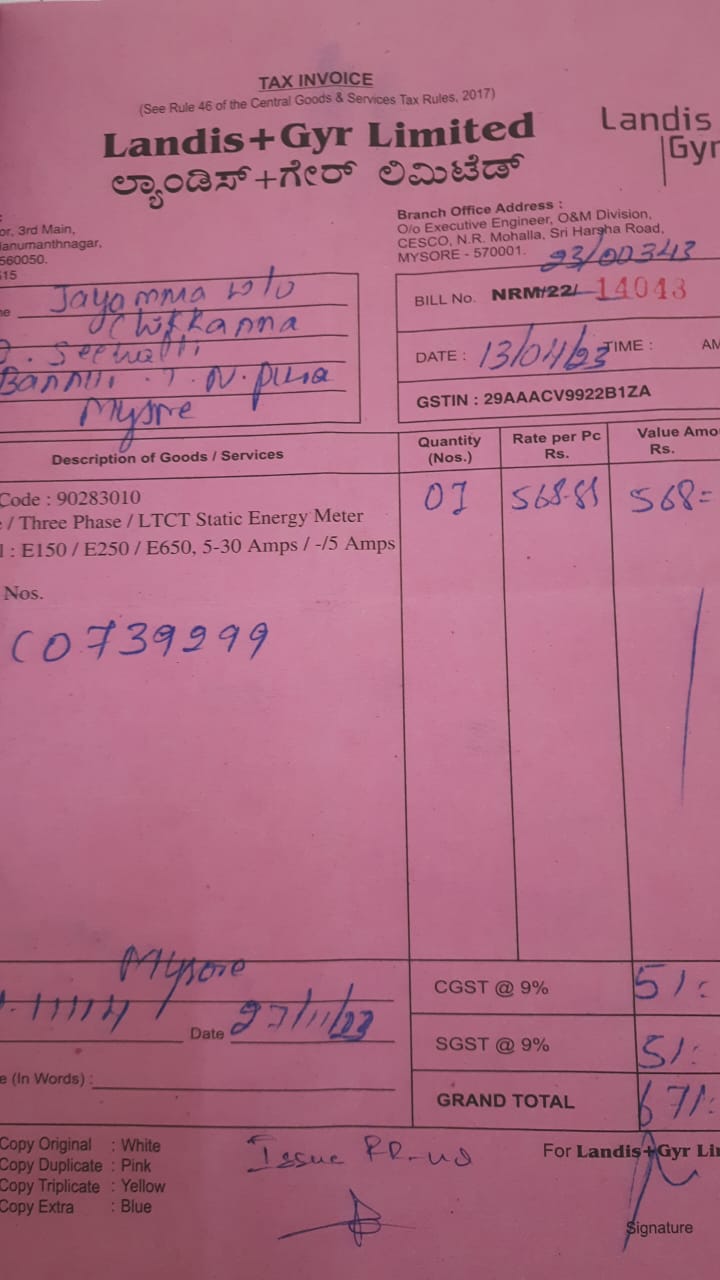 TAX INVOICE
(See Rule 46 of the Central Goods & Services Tax Rules, 2017)
Landis+Gyr Limited
ಲ್ಯಾಂಡಿಸ್+ಗೇರ್ ಲಿಮಿಟೆಡ್
Landis
Gyr
or, 3rd Main,
anumanthnagar,
560050.
15
Branch Office Address :
O/o Executive Engineer, O&M Division,
CESCO, N.R. Mohalla, Sri Harsha Road,
MYSORE - 570001.
23/00343
BILL No. NRM/22/ 14043
DATE : 13/04/23 TIME : AM
GSTIN : 29AAACV9922B1ZA
Jayamma w/o
Chikkanna
Mysore
Description of Goods / Services
Quantity
(Nos.)
Rate per Pc
Rs.
Value Amo
Rs.
Code : 90283010
/ Three Phase / LTCT Static Energy Meter
: E150 / E250 / E650, 5-30 Amps / -/5 Amps
01 568-81 568=
Nos.
C0739299
Mysore
Date 27/11/23
CGST @ 9% 51:
SGST @ 9% 51:
(In Words) :
GRAND TOTAL 671:
Copy Original : White
Copy Duplicate : Pink
Copy Triplicate : Yellow
Copy Extra : Blue
Issue
For Landis+Gyr Li
Signature